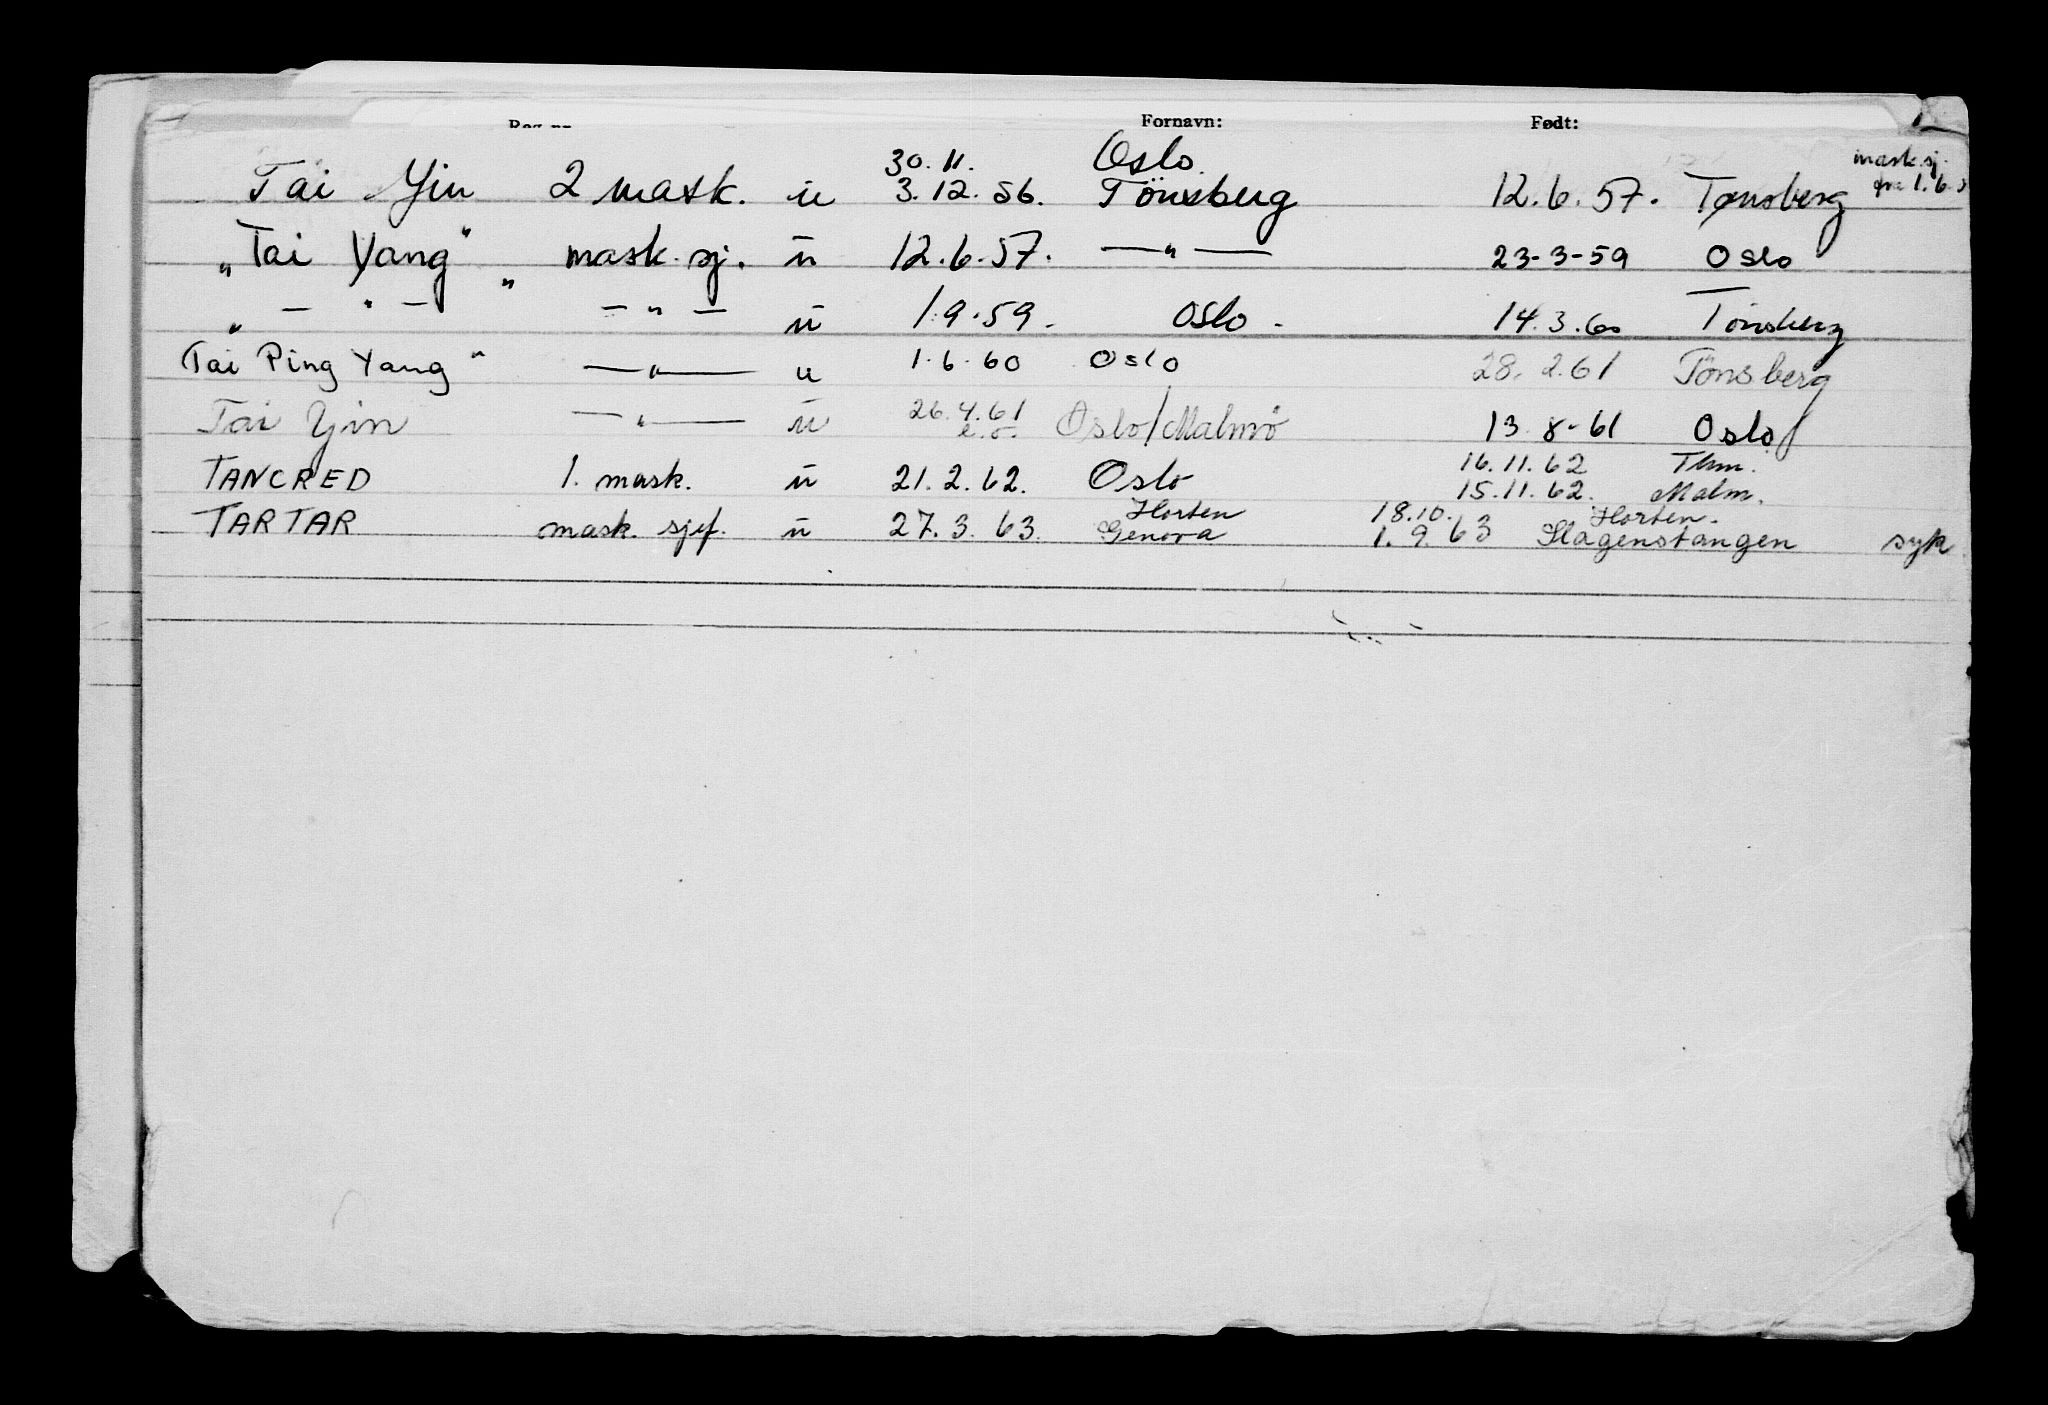 Fornavn: Født:
30.11. Oslo. mask.sj.
Tai Yin 2 mask. u 3.12.56. Tönsberg 12.6.57. Tønsberg fra 1.6.
"Tai Yang" mask.sj. u 12.6.57. — " — 23-3-59 Oslo
" — " — " — " — u 1.9.59. Oslo. 14.3.60 Tönsberg
Tai Ping Yang" — " — u 1.6.60 Oslo 28.2.61 Tönsberg
Tai Yin — " — u 26.4.61 Oslo/Malmö 13.8-61 Oslo/
e.o.
16.11.62 Thm.
TANCRED 1. mask. u 21.2.62. Oslo 15.11.62. Malm.
Horten 18.10. Horten.
TARTAR mask. sjef. u 27.3.63. Genova 1.9.63 Slagenstangen syk